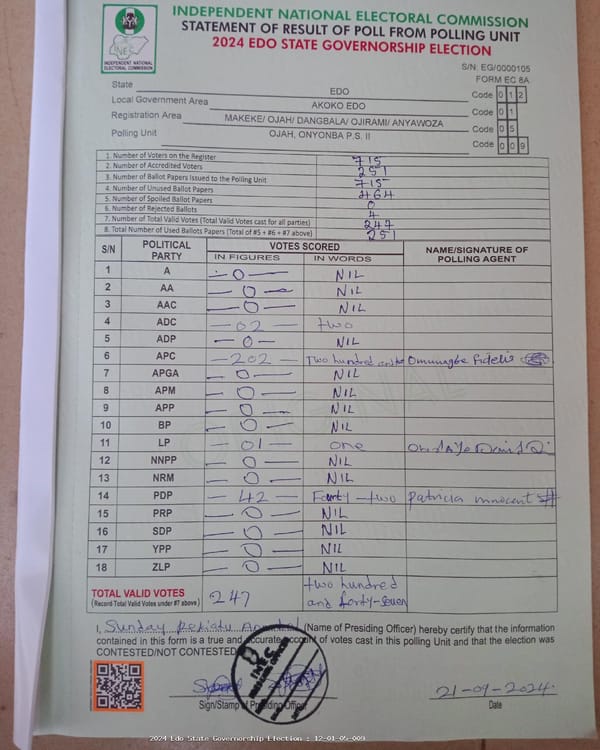 INDEPENDENT NATIONAL ELECTORAL COMMISSION
STATEMENT OF RESULT OF POLL FROM POLLING UNIT
2024 EDO STATE GOVERNORSHIP ELECTION
INEC
INDEPENDENT NATIONAL ELECTORAL COMMISSION
S/N: EG/0000105
FORM EC 8A
State EDO Code 0 1 2
Local Government Area AKOKO EDO Code 0 1
Registration Area MAKEKE/ OJAH/ DANGBALA/ OJIRAMI/ ANYAWOZA Code 0 5
Polling Unit OJAH, ONYONBA P.S. II Code 0 0 9
1. Number of Voters on the Register 715
2. Number of Accredited Voters 251
3. Number of Ballot Papers Issued to the Polling Unit 715
4. Number of Unused Ballot Papers 464
5. Number of Spoiled Ballot Papers 0
6. Number of Rejected Ballots 4
7. Number of Total Valid Votes (Total Valid Votes cast for all parties) 247
8. Total Number of Used Ballots Papers (Total of #5 + #6 + #7 above) 251
S/N POLITICAL PARTY VOTES SCORED NAME/SIGNATURE OF POLLING AGENT
IN FIGURES IN WORDS
1 A - 0 - NIL
2 AA - 0 - NIL
3 AAC - 0 - NIL
4 ADC - 02 - two
5 ADP - 0 - NIL
6 APC - 202 - Two hundred and Omunagbe Fidelis
7 APGA - 0 - NIL
8 APM - 0 - NIL
9 APP - 0 - NIL
10 BP - 0 - NIL
11 LP - 01 - one
12 NNPP - 0 - NIL
13 NRM - 0 - NIL
14 PDP - 42 - Founty-two Patricia innocent
15 PRP - 0 - NIL
16 SDP - 0 - NIL
17 YPP - 0 - NIL
18 ZLP - 0 - NIL
TOTAL VALID VOTES 247 two hundred and forty-seven
(Record Total Valid Votes under #7 above)
I, Sunday (Name of Presiding Officer) hereby certify that the information
contained in this form is a true and accurate account of votes cast in this polling Unit and that the election was
CONTESTED/NOT CONTESTED
INEC
Sign/Stamp of Presiding Officer
21-09-2024
Date
2024 Edo State Governorship Election : 12-01-05-009